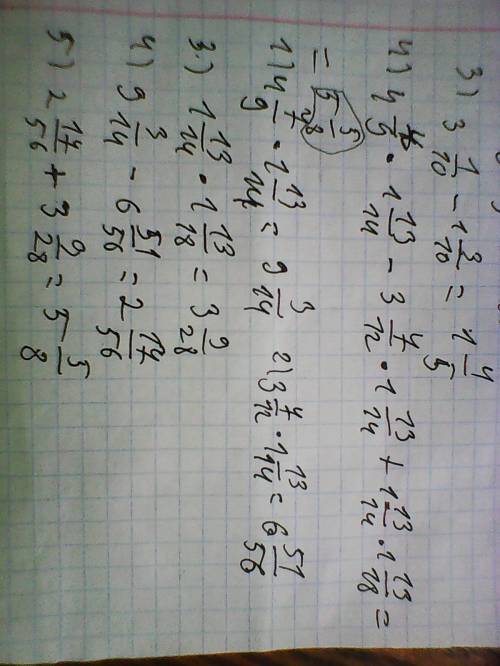 3) 3 1/10 - 1 3/10 = 1 4/5
4) 4 7/9 · 1 13/14 - 3 7/12 · 1 13/14 + 1 13/14 · 1 13/18 =
= 5 5/8
1) 4 7/9 · 1 13/14 = 9 3/14 2) 3 7/12 · 1 13/14 = 6 51/56
3.) 1 13/14 · 1 13/18 = 3 9/28
4) 9 3/14 - 6 51/56 = 2 17/56
5) 2 17/56 + 3 9/28 = 5 5/8